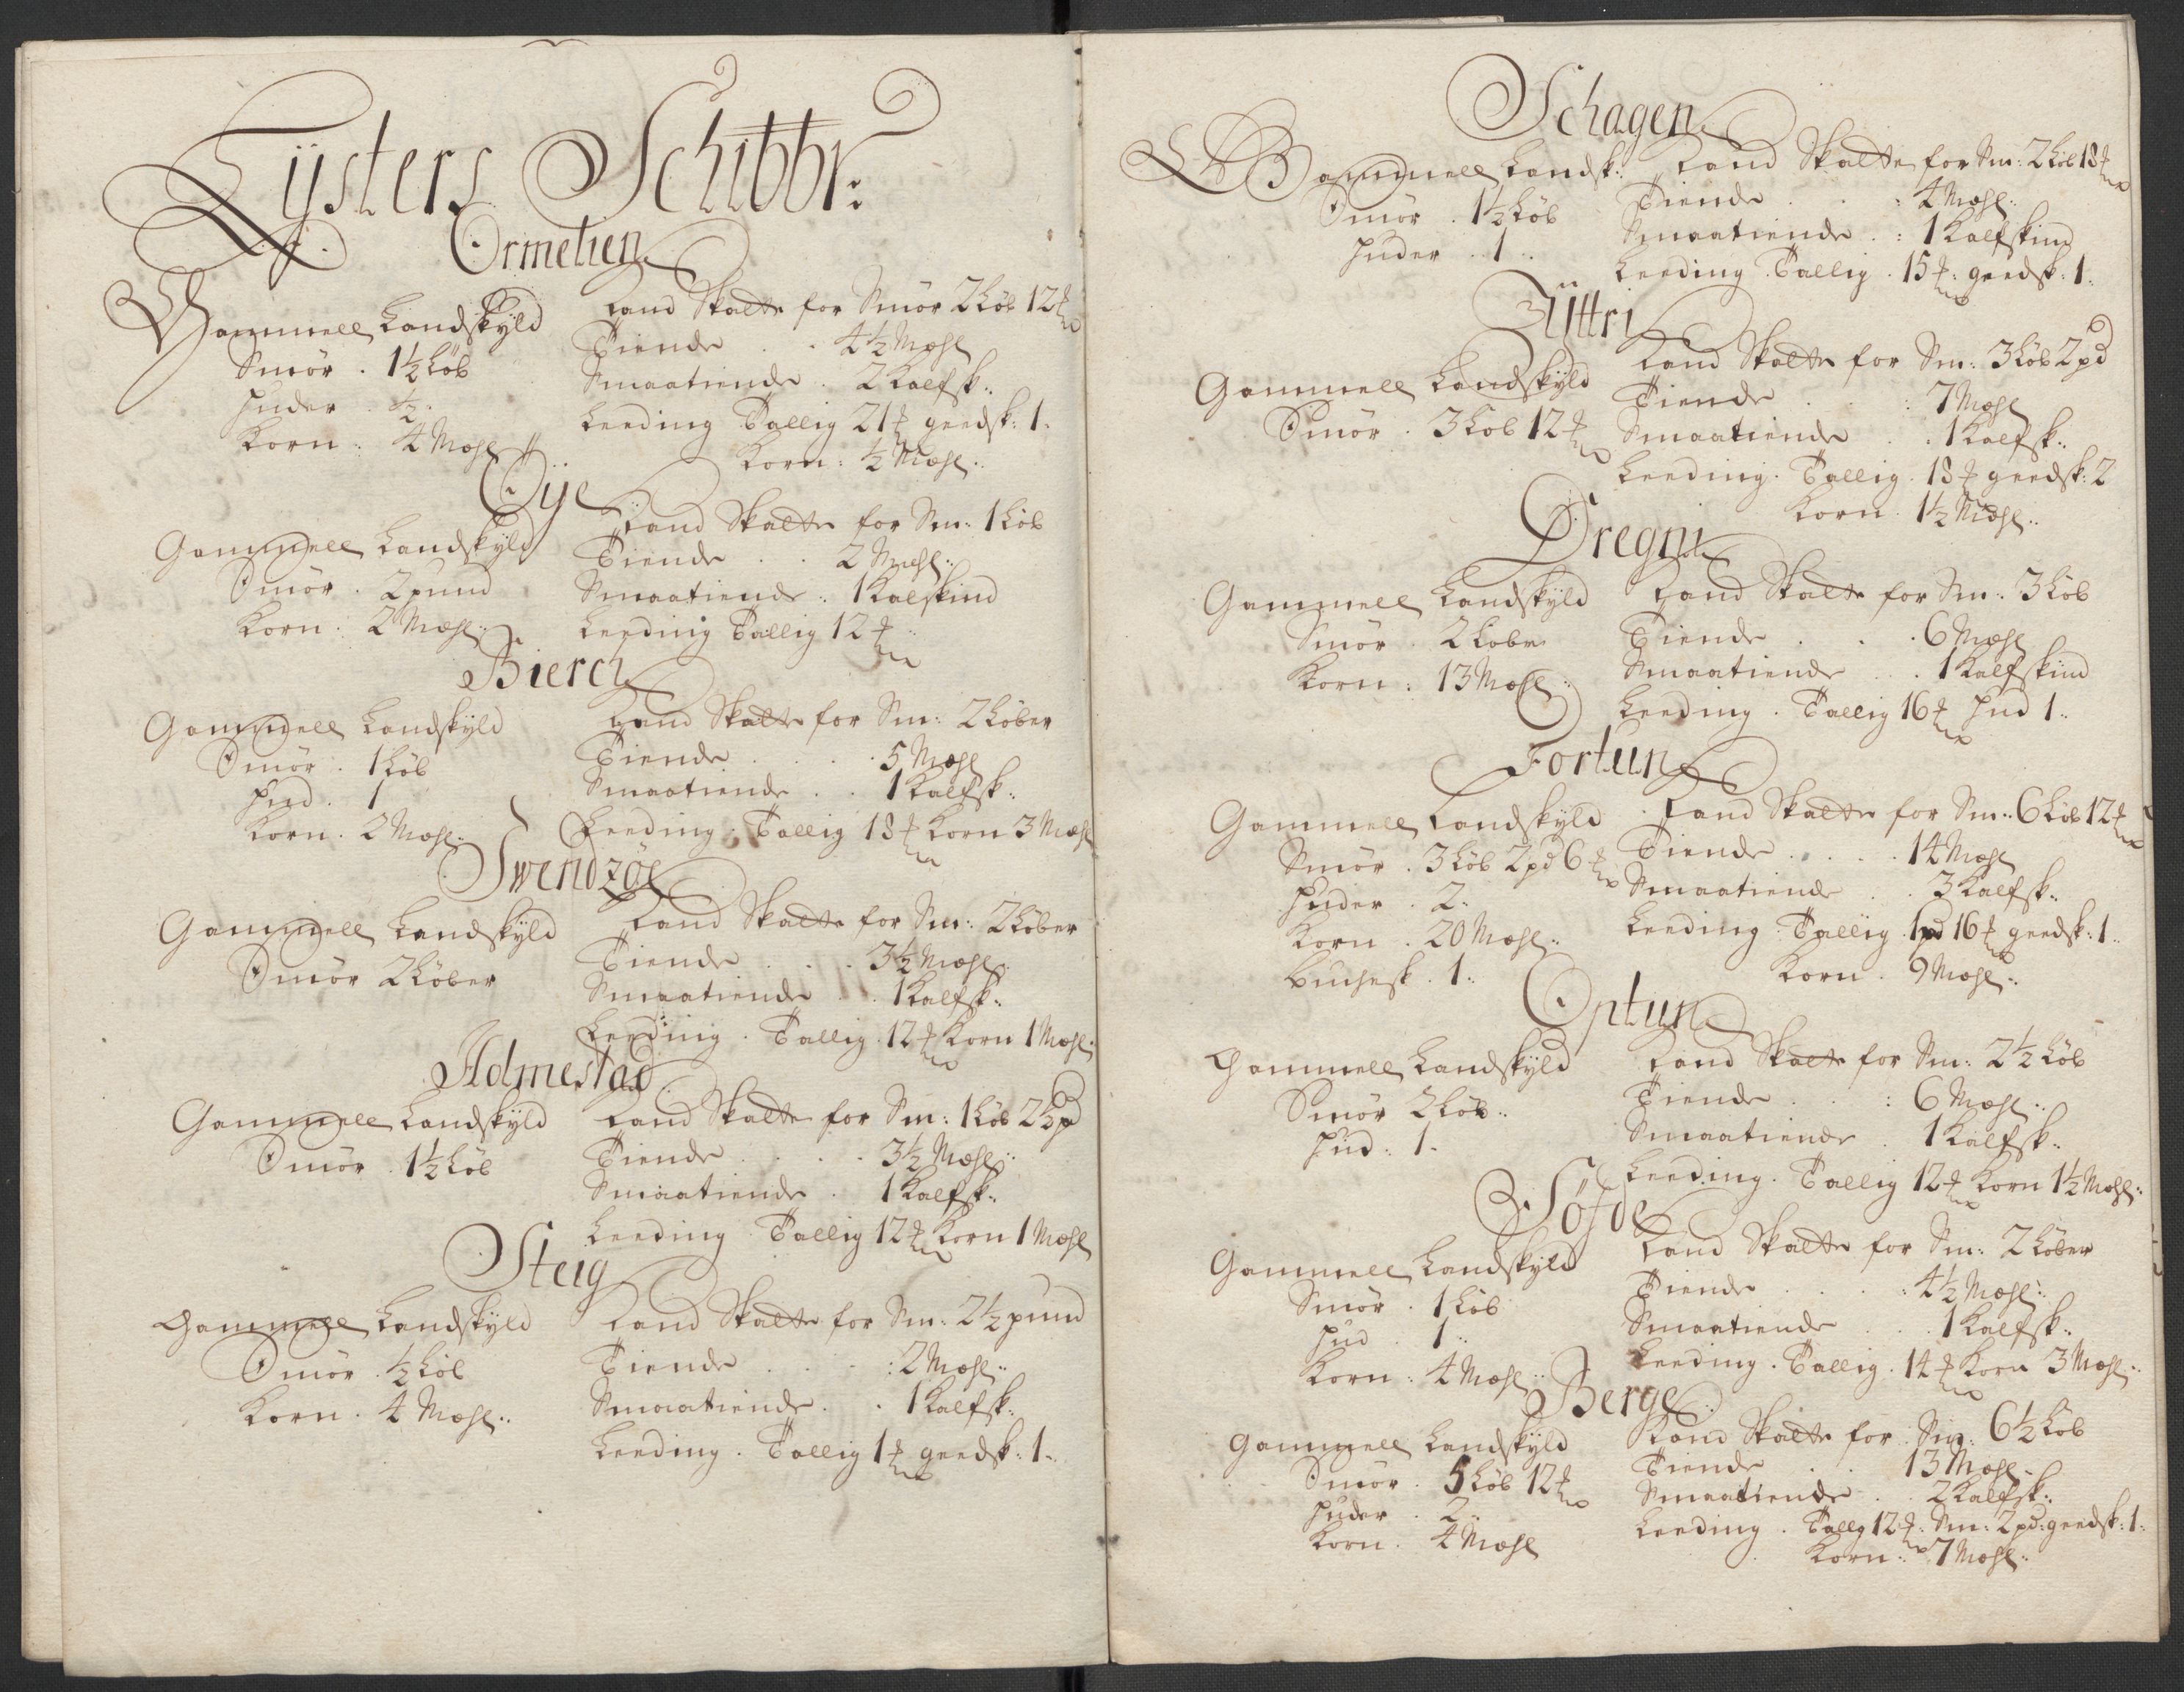 Lÿsters Schibbr:
Ormelien
Gammell Landskÿld
Smör . 1½ Löb
Huder . ½
Korn : 4 Mæhl
Land Skatte for Smör 2 Löb 12 ℔
Tiende . . 4½ Mæhl
Smaatiende . 2 Kalfsk:
Leeding Tallig 21 ℔ geedsk: 1.
Korn : ½ Mæhl
Oÿe
Gammell Landskÿld
Smör . 2 pund
Korn : 2 Mæhl
Land Skatte for Sm: 1 Löb
Tiende . . 2 Mæhl
Smaatiende : 1 Kalfskind
Leeding Tallig 12 ℔
Bierch
Gammell Landskÿld
Smör . 1 Löb
Hud . 1
Korn . 2 Mæhl
Land Skatte for Sm: 2 Löber
Tiende . . . 5 Mæhl
Smaatiende . . 1 Kalfsk:
Leeding . Tallig 18 ℔ Korn 3 Mæhl
Swendzöe
Gammell Landskÿld
Smör 2 Löber
Land Skatte for Sm: 2 Löber
Tiende . . . 3½ Mæhl
Smaatiende . . 1 Kalfsk:
Leeding . Tallig . 12 ℔ Korn 1 Mæhl
Admestad
Gammell Landskÿld
Smör . 1½ Löb
Land Skatte for Sm: 1 Löb 2½ pd
Tiende . . . 3½ Mæhl
Smaatiende . 1 Kalfsk:
Leeding Tallig 12 ℔ Korn 1 Mæhl
Steig
Gammell Landskÿld
Smör . ½ Löb
Korn . 4 Mæhl
Land Skatte for Sm: 2½ pund
Tiende . . . : 2 Mæhl
Smaatiende . . 1 Kalfsk:
Leeding . Tallig 1 ℔ geedsk: 1.
Schagen
Gammell Landsk:
Smör . 1½ Löb
Huder . 1
Land Skatte for Sm: 2 Löb 18 ℔
Tiende . . : 4 Mæhl
Smaatiende . : 1 Kalfskind
Leeding Tallig . 15 ℔: geedsk: 1.
Ÿttri
Gammell Landskÿld
Smör . 3 Löb 12 ℔
Land Skatte for Sm: 3 Löb 2 pd
Tiende . . : 7 Mæhl
Smaatiende . . 1 Kalfsk:
Leeding . Tallig . 18 ℔ geedsk: 2
Korn . 1½ Mæhl
Dregni
Gammell Landskÿld
Smör . 2 Löber
Korn : 13 Mæhl
Land Skatte for Sm: 3 Löb
Tiende . . . 6 Mæhl
Smaatiende . . 1 Kalfskind
Leeding . Tallig 16 ℔ Hud 1.
Fortun
Gammell Landskÿld
Smör . 3 Löb 2 pd 6 ℔
Huder . 2.
Korn . 20 Mæhl
Buchesk . 1.
Land Skatte for Sm: 6 Löb 12 ℔
Tiende . . . . 14 Mæhl
Smaatiende . . 3 Kalfsk:
Leeding Tallig . 1 pd 16 ℔ geedsk: 1.
Korn . 9 Mæhl
Optun
Gammell Landskÿld
Smör 2 Löb
Hud : 1.
Land Skatte for Sm: 2½ Löb
Tiende . . : 6 Mæhl
Smaatiende . 1 Kalfsk:
Leeding . Tallig 12 ℔ Korn 1½ Mæhl
Söfde
Gammell Landskÿld
Smör . 1 Löb
Hud . 1
Korn : 4 Mæhl
Land Skatte for Sm: 2 Löber
Tiende . . . : 4½ Mæhl
Smaatiende . . 1 Kalfsk:
Leeding . Tallig . 14 ℔ Korn 3 Mæhl
Berge
Gammell Landskÿld
Smör . 5 Löb 12 ℔
Huder . 2
Korn . 4 Mæhl
Land Skatte for Sm: 6½ Löb
Tiende . . 13 Mæhl
Smaatiende . . 2 Kalfsk:
Leeding . Tallg 12 ℔: Sm: 2 pd: geedsk: 1.
Korn : 7 Mæhl